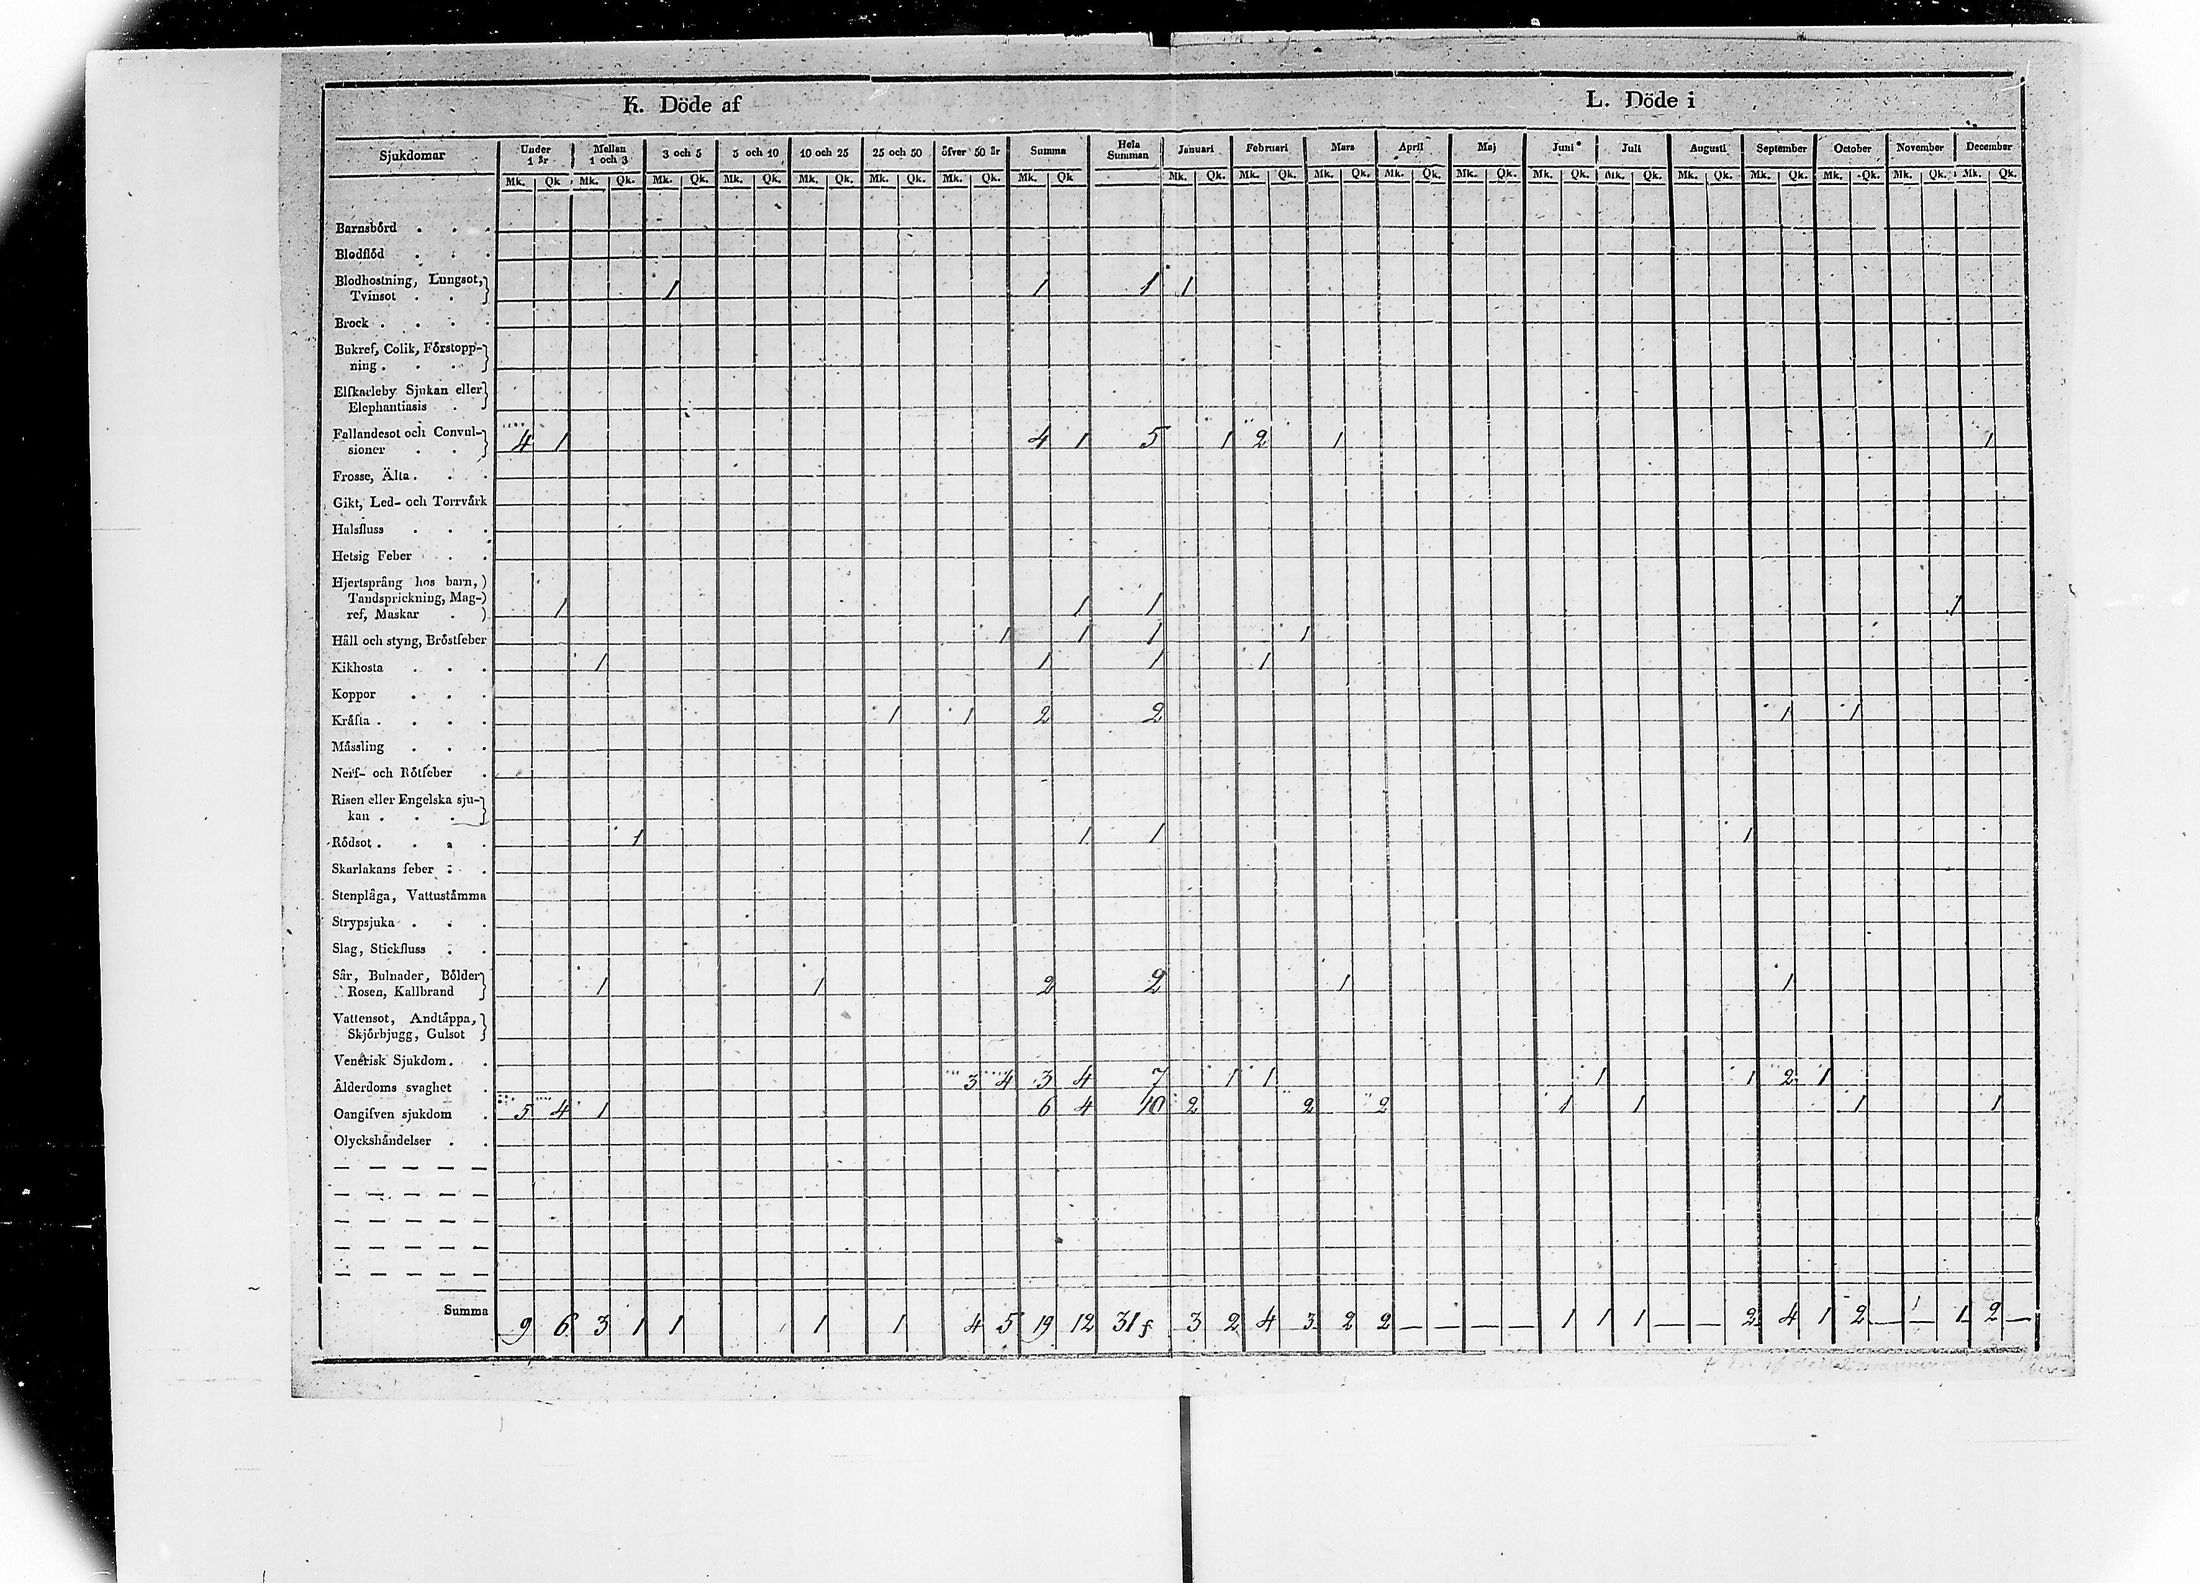 K. Döde af L. Döde i
Sjukdomar Under 1 år Mellan 1 och 3 3 och 5 5 och 10 10 och 25 25 och 50 öfver 50 år Summa Hela Summan Januari Februari Mars April Maj Juni Juli Augusti September October November December
Mk. Qk Mk. Qk. Mk. Qk. Mk. Qk. Mk. Qk. Mk. Qk. Mk. Qk. Mk. Qk Mk. Qk. Mk. Qk. Mk. Qk. Mk. Qk. Mk. Qk. Mk. Qk. Mk. Qk. Mk. Qk. Mk. Qk. Mk. Qk. Mk. Qk. Mk. Qk.
Barnsbörd . . .
Blodflöd . . .
Blodhostning, Lungsot,
Tvinsot . . 1 1 1 1
Brock . . . .
Bukref, Colik, Förstopp-
ning . . .
Elfkarleby Sjukan eller
Elephantiasis .
Fallandesot och Convul-
sioner . . 4 1 4 1 5 1 2 1 1
Frosse, Älta . . .
Gikt, Led- och Torrvärk
Halsfluss . . .
Hetsig Feber . .
Hjertsprång hos barn,
Tandsprickning, Mag-
ref, Maskar . 1 1 1 1
Håll och styng, Bröstfeber 1 1 1 1
Kikhosta . . . 1 1 1 1
Koppor . . .
Kräfta . . . . 1 1 2 2 1 1
Mässling . . .
Nerf- och Rötfeber .
Risen eller Engelska sju-
kan . . .
Rödsot . . . . 1 1 1 1
Skarlakans feber . .
Stenplåga, Vattustämma
Strypsjuka . . .
Slag, Stickfluss . .
Sår, Bulnader, Bölder
Rosen, Kallbrand 1 1 2 2 1 1
Vattensot, Andtäppa,
Skjörbjugg, Gulsot
Venerisk Sjukdom . .
Ålderdoms svaghet . 3 4 3 4 7 1 1 1 1 2 1
Oangifven sjukdom . 5 4 1 6 4 10 2 2 2 1 1 1 1
Olyckshändelser . .
— — — — —
— — — — —
— — — — —
— — — — —
— — — — —
Summa 9 6 3 1 1 1 1 4 5 19 12 31 3 2 4 3 2 2 — — — — 1 1 1 — — 2 4 1 2 — — 1 2 —